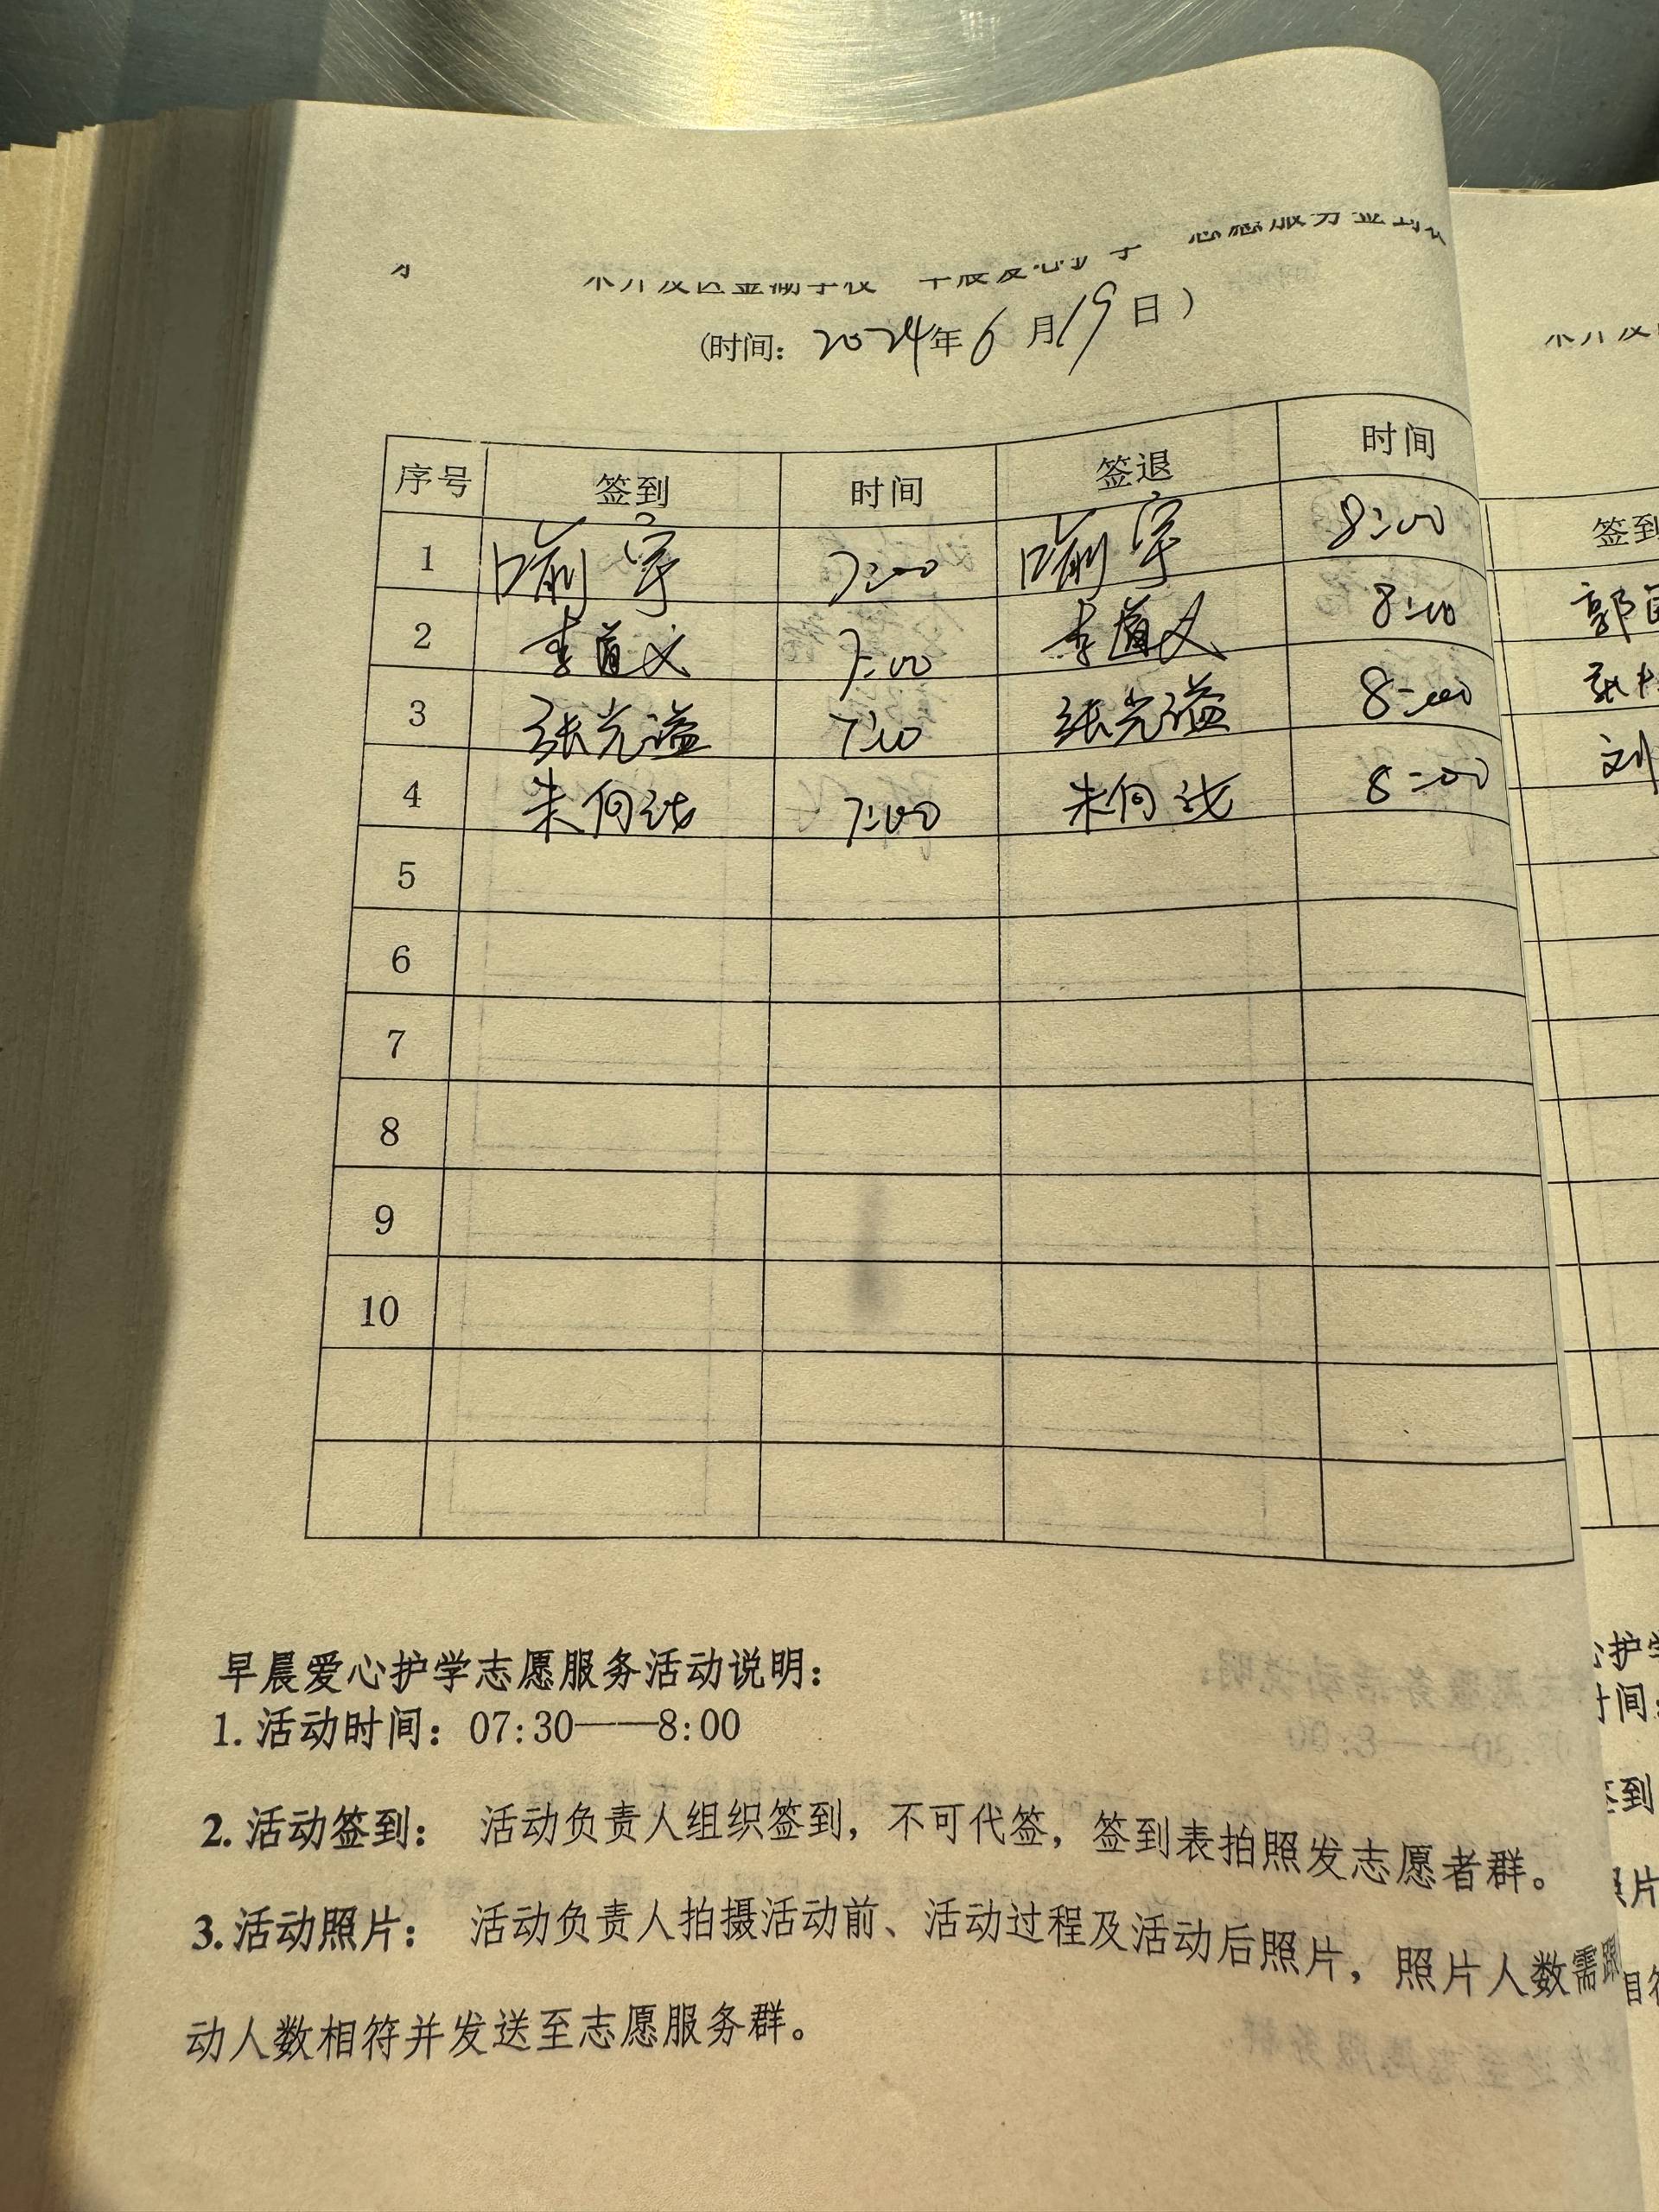 (时间：2024年6月19日)
序号 签到 时间 签退 时间
1 喻宇 7:00 喻宇 8:00
2 李道义 7:00 李道义 8:00
3 张光谥 7:00 张光谥 8:00
4 朱向 7:00 朱向 8:00
5
6
7
8
9
10
早晨爱心护学志愿服务活动说明：
1.活动时间：07:30——8:00
2.活动签到： 活动负责人组织签到，不可代签，签到表拍照发志愿者群。
3.活动照片： 活动负责人拍摄活动前、活动过程及活动后照片，照片人数需跟
动人数相符并发送至志愿服务群。
签到
郭
刘
护学
时间：
签到
片